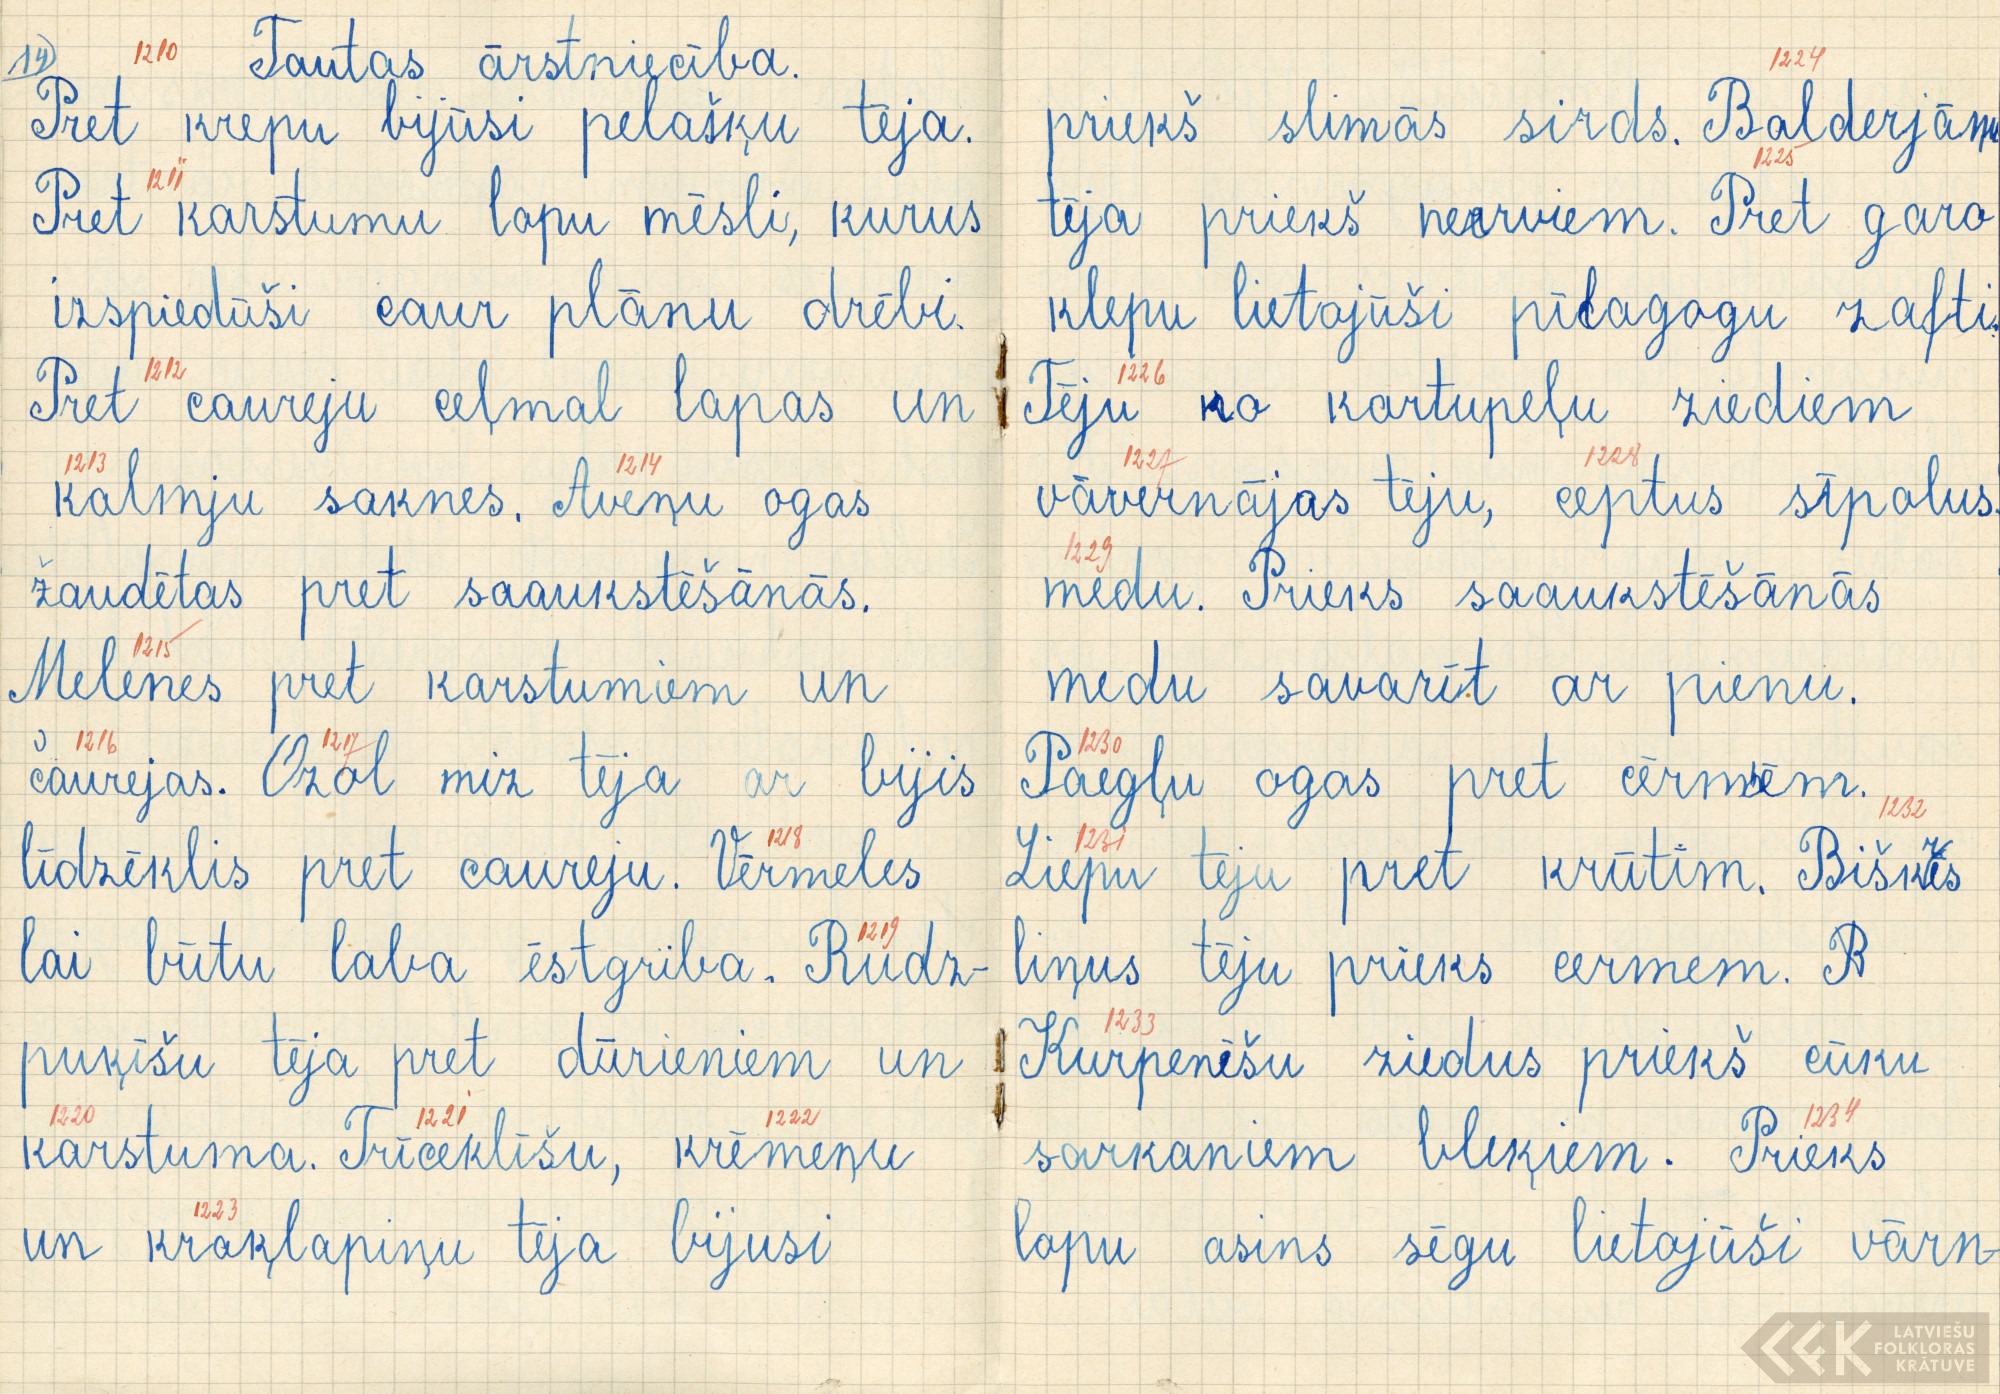 14) 1210 Tautas ārstniecība.
Pret krepu bijūsi pelašķu tēja.
1211
Pret karstumu lopu mēsli, kurus
izspiedūši caur plānu drēbi.
1212
Pret caureju ceļmal lapas un
1213 1214
kalmju saknes. Aveņu ogas
žaudētas pret saaukstēšānās.
1215
Melenes pret karstumiem un
1216 1217
caurejas. Ozol miz tēja ar bijis
1218
līdzēklis pret caureju. Vērmeles
1219
lai būtu laba ēstgriba. Rudz-
puķīšu tēja pret dūrieniem un
1220 1221 1222
karstuma. Trīceklīšu, krēmeņu
1223
un krakļlapiņu tēja bijusi
1224
priekš slimās sirds. Balderjāņu
1225
tēja priekš nerviem. Pret garo
klepu lietojūši pīlagogu zafti.
1226
Tēju no kartupeļu ziediem
1227 1228
vāvernājas tēju, ceptus sīpolus.
1229
medu. Prieks saaukstēšānās
medu savarīt ar pienu.
1230
Paegļu ogas pret cērmēm.
1231 1232
Liepu teju pret krūtīm. Biškrēs
liņus tēju prieks cermem.
1233
Kurpenīšu ziedus priekš cūku
1234
sarkaniem bleķiem. Prieks
lopu asins sēgu lietojūši vārn-
LATVIEŠU
FOLKLORAS
KRĀTUVE